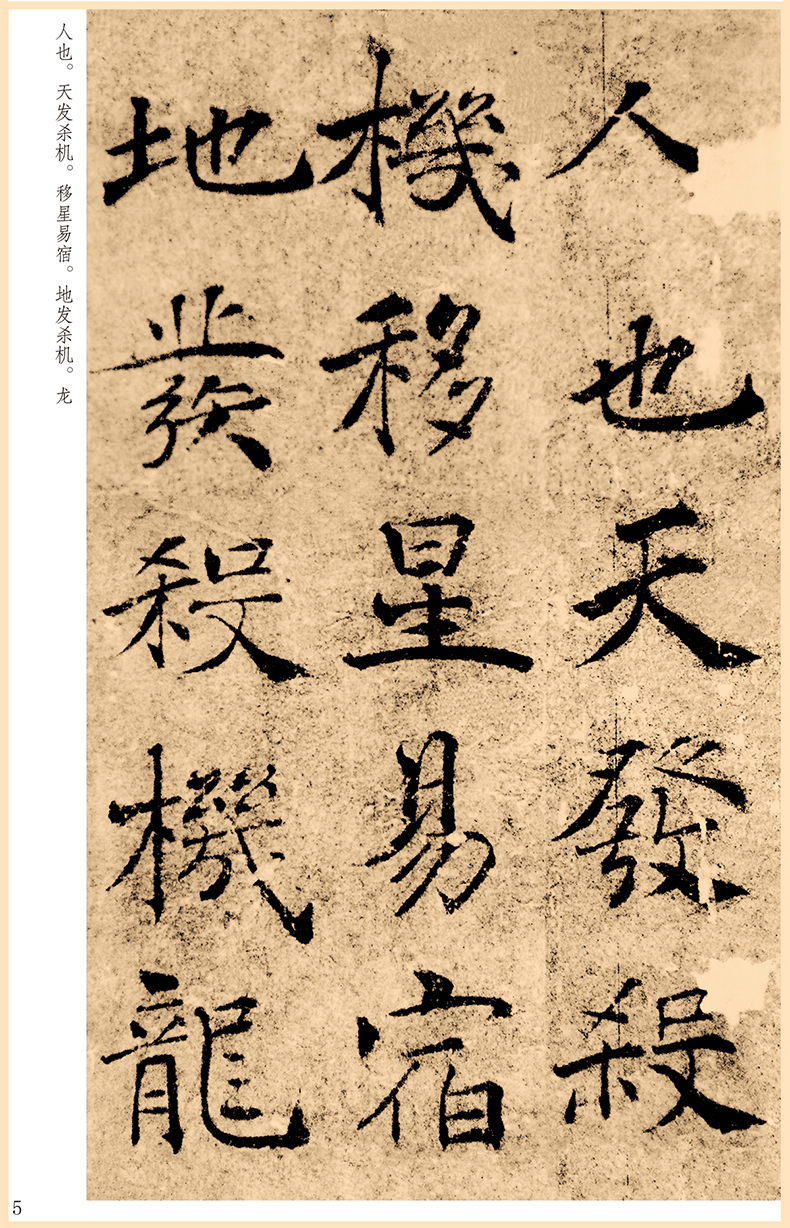 人也天發殺
機移星易宿
地發殺機龍
人也。天发杀机。移星易宿。地发杀机。龙
5